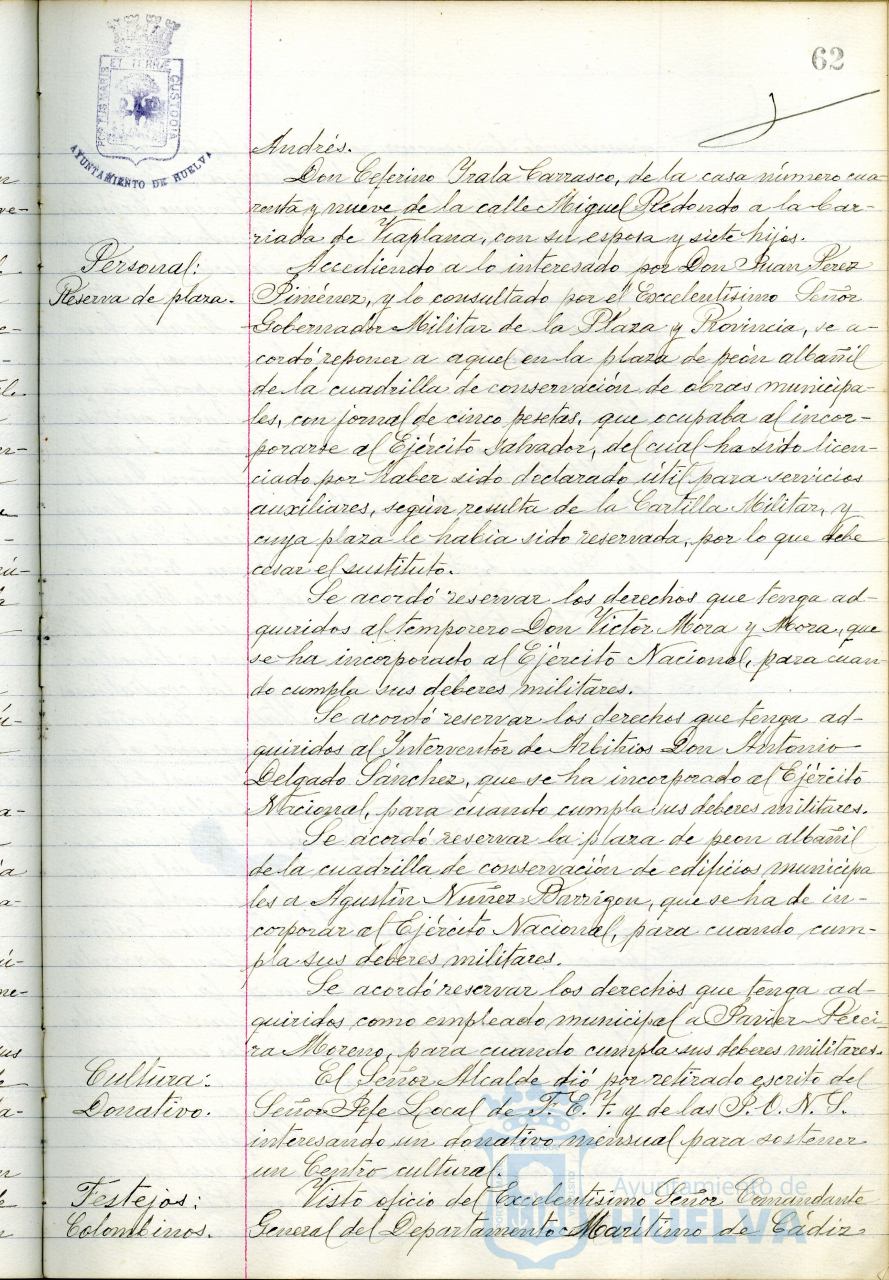 62
POR TUS MARIS ET TERRÆ CUSTODIA
AYUNTAMIENTO DE HUELVA
Andrés.
Don Ceferino Trata Carrasco, de la casa número cua-
renta y nueve de la calle Miguel Redondo a la Bar-
riada de Viaplana, con su esposa y siete hijos.
Personal:
Reserva de plaza.
Accediendo a lo interesado por Don Juan Perez
Jiménez, y lo consultado por el Excelentísimo Señor
Gobernador Militar de la Plaza y Provincia, se a-
cordó reponer a aquel en la plaza de peón albañil
de la cuadrilla de conservación de obras municipa-
les, con jornal de cinco pesetas, que ocupaba al incor-
porarse al Ejército Salvador, del cual ha sido licen-
ciado por haber sido declarado útil para servicios
auxiliares, según resulta de la Cartilla Militar, y
cuya plaza le había sido reservada, por lo que debe
cesar el sustituto.
Se acordó reservar los derechos que tenga ad-
quiridos al temporero Don Victor Mora y Mora, que
se ha incorporado al Ejército Nacional, para cuan
do cumpla sus deberes militares.
Se acordó reservar los derechos que tenga ad-
quiridos al Interventor de Arbitrios Don Antonio
Delgado Sánchez, que se ha incorporado al Ejército
Nacional, para cuando cumpla sus deberes militares.
Se acordó reservar la plaza de peon albañil
de la cuadrilla de conservación de edificios municipa
les a Agustín Nuñez Barrigon, que se ha de in-
corporar al Ejército Nacional, para cuando cum-
pla sus deberes militares.
Se acordó reservar los derechos que tenga ad-
quiridos como empleado municipal a Javier Perei-
ra Moreno, para cuando cumpla sus deberes militares.
Cultura:
Donativo.
El Señor Alcalde dió por retirado escrito del
Señor Jefe Local de F. E. T. y de las J. O. N. S.
interesando un donativo mensual para sostener
un Centro cultural.
Festejos:
Colombinos.
Visto oficio del Excelentísimo Señor Comandante
General del Departamento Marítimo de Cádiz
Ayuntamiento de
HUELVA